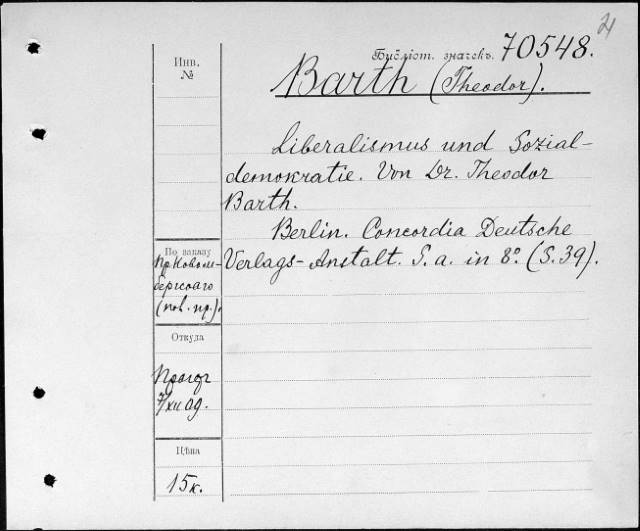 21
Библіот. значекъ. 70548.
Инв.
№
Barth (Theodor).
Liberalismus und Sozial-
demokratie. Von Dr. Theodor
Barth.
Berlin. Concordia Deutsche
Verlags-Anstalt. S. a. in 8º. (S. 39).
По заказу
(пов. пр.).
Откуда
7/XII 09.
Цѣна
15 к.